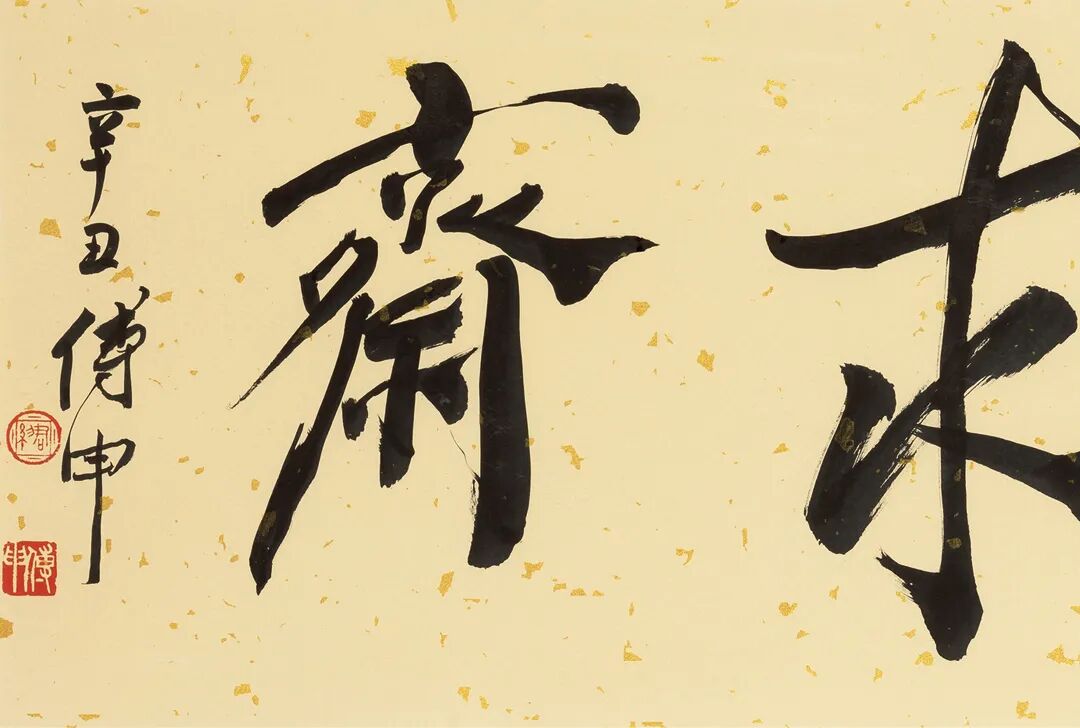 求齋
辛丑傅申
君約
傅申